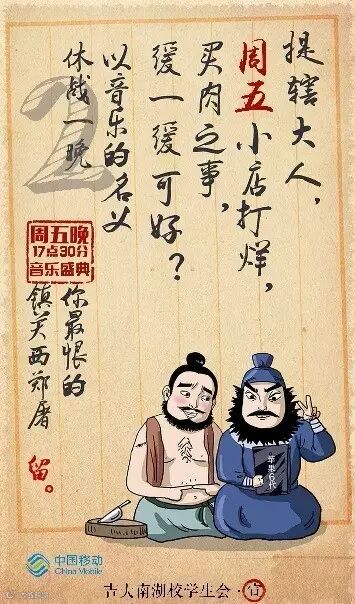 提辖大人，
周五小店打烊，
买肉之事，
缓一缓可好？
以音乐的名义
休战一晚
2
周五晚
17点30分
音乐盛典
你最恨的
镇关西郑屠
留。
苹果6代
中国移动
China Mobile
吉大南湖校学生会·宣